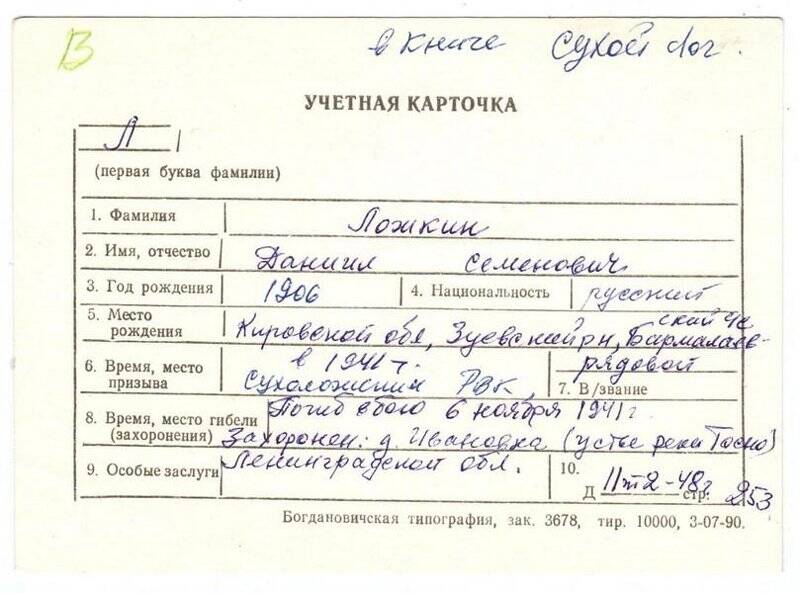 В
в Книге Сухой Лог.
УЧЕТНАЯ КАРТОЧКА
Л
(первая буква фамилии)
1. Фамилия Ложкин
2. Имя, отчество Даниил Семенович
3. Год рождения 1906 4. Национальность русский
5. Место рождения Кировской обл, Зуевский рн, Бармалаев-
ский с/с
6. Время, место призыва в 1941 г.
Сухоложский РВК,
7. В/звание рядовой
8. Время, место гибели (захоронения) Погиб в бою 6 ноября 1941 г.
Захоронен: д. Ивановка (устье реки Тосно)
Ленинградской обл.
9. Особые заслуги
10.
Д стр. 253
Богдановичская типография, зак. 3678, тир. 10000, 3-07-90.